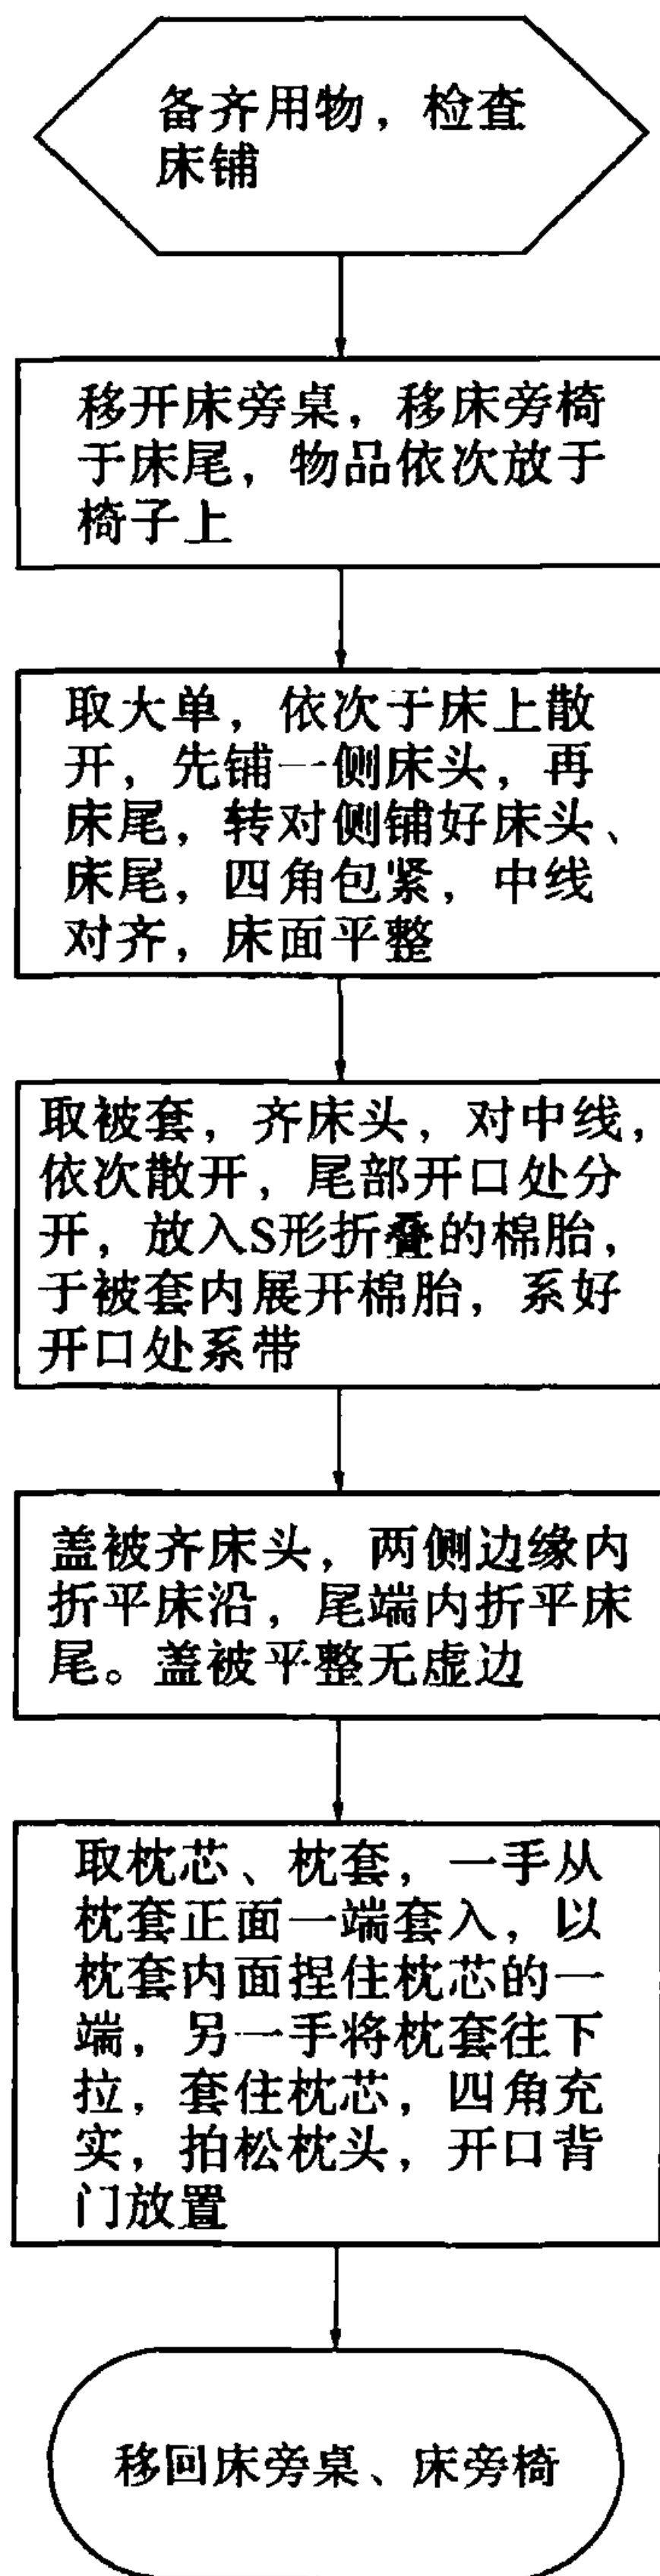 备齐用物，检查
床铺
移开床旁桌，移床旁椅
于床尾，物品依次放于
椅子上
取大单，依次于床上散
开，先铺一侧床头，再
床尾，转对侧铺好床头、
床尾，四角包紧，中线
对齐，床面平整
取被套，齐床头，对中线，
依次散开，尾部开口处分
开，放入S形折叠的棉胎，
于被套内展开棉胎，系好
开口处系带
盖被齐床头，两侧边缘内
折平床沿，尾端内折平床
尾。盖被平整无虚边
取枕芯、枕套，一手从
枕套正面一端套入，以
枕套内面捏住枕芯的一
端，另一手将枕套往下
拉，套住枕芯，四角充
实，拍松枕头，开口背
门放置
移回床旁桌、床旁椅